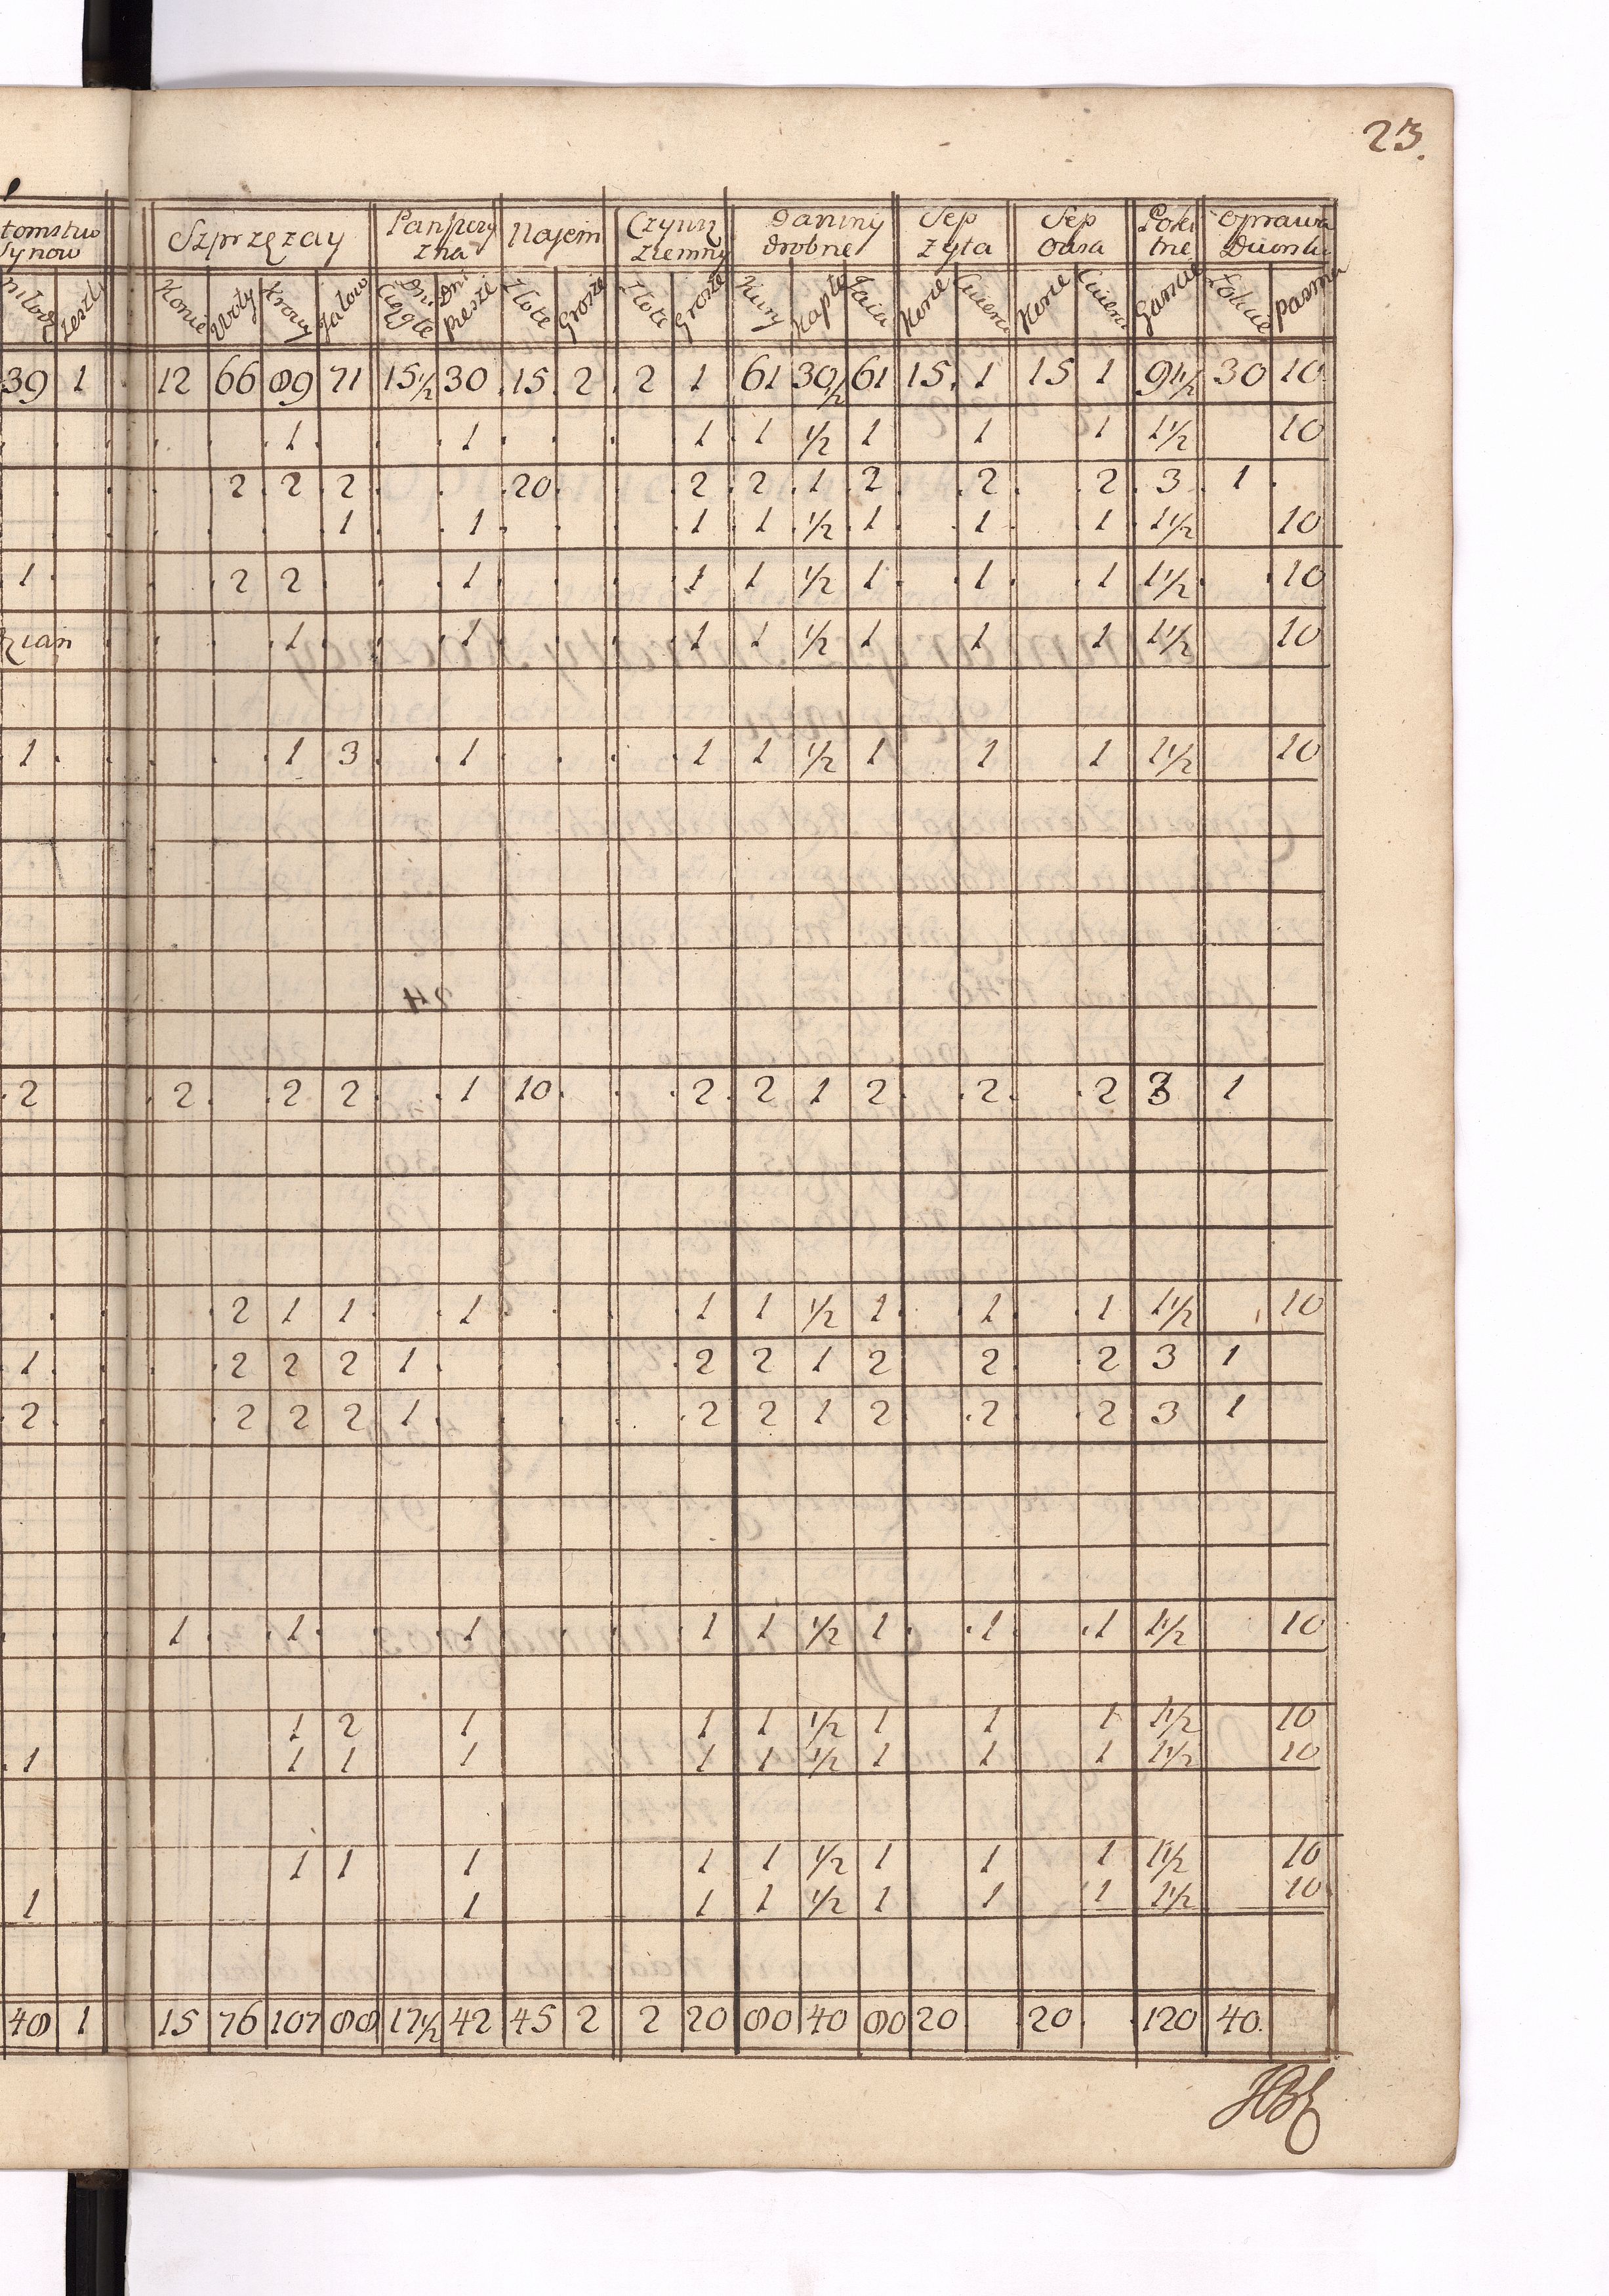 23.
tomstwo Szprzęzay Panszczy Najem Czynsz Daniny Sep Sep Oprawa
synow zna Ziemny drobne Zyta Owsa tne Dworska
Konie Woły Krowy Jałow Dni Ciągłe Dni Piesze Złote Grosze Złote Grosze Kury Kapło Jaia Korce Cwierci Korce Cwierci Garnce Łokcie Pasma
39 1 12 66 89 71 15 1/2 30 15 2 2 1 61 30 1/2 61 15 1 15 1 91 1/2 30 10
1 1 1 1 1/2 1 1 1 1 1/2 10
2 2 2 20 2 2 1 2 2 2 3 1
1 1 1 1 1/2 1 1 1 1 1/2 10
1 2 2 1 1 1 1/2 1 1 1 1 1/2 10
zian 1 1 1 1 1/2 1 1 1 1 1/2 10
1 1 3 1 1 1 1/2 1 1 1 1 1/2 10
2 2 2 2 1 10 2 2 1 2 2 2 3 1
2 1 1 1 1 1 1/2 1 1 1 1 1/2 10
1 2 2 2 1 2 2 1 2 2 2 3 1
2 2 2 2 1 2 2 1 2 2 2 3 1
1 1 1 1 1 1/2 1 1 1 1 1/2 10
1 2 1 1 1 1/2 1 1 1 1 1/2 10
1 1 1 1 1 1 1/2 1 1 1 1 1/2 10
1 1 1 1 1 1/2 1 1 1 1 1/2 10
1 1 1 1 1/2 1 1 1 1 1/2 10
48 1 15 76 107 88 17 1/2 42 45 2 2 20 80 40 80 20 20 120 40